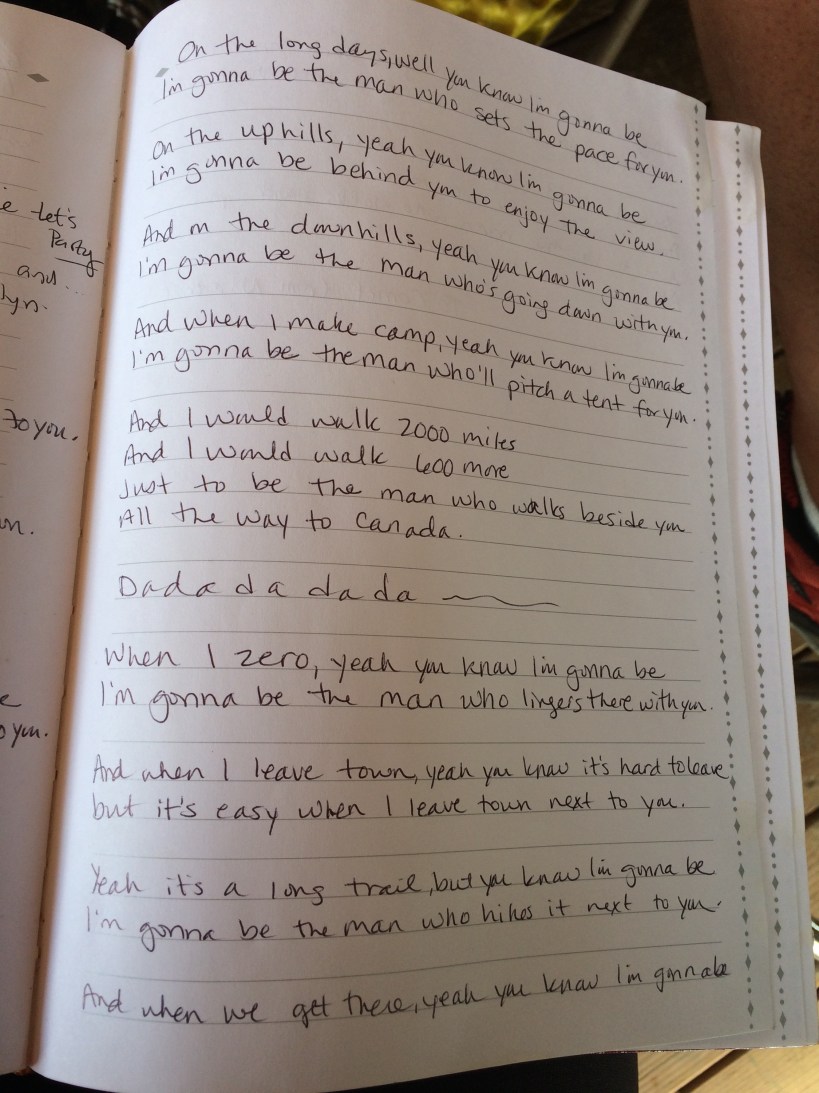 e let's
Party
and..
lyn.
to you.
on.
e
o you.
On the long days, well you know I'm gonna be
I'm gonna be the man who sets the pace for you.
On the uphills, yeah you know I'm gonna be
I'm gonna be behind you to enjoy the view.
And on the downhills, yeah you know I'm gonna be
I'm gonna be the man who's going down with you.
And when I make camp, yeah you know I'm gonna be
I'm gonna be the man who'll pitch a tent for you.
And I would walk 2000 miles
And I would walk 600 more
Just to be the man who walks beside you
All the way to Canada.
Dada da da da
When I zero, yeah you know I'm gonna be
I'm gonna be the man who lingers there with you.
And when I leave town, yeah you know it's hard to leave
but it's easy when I leave town next to you.
Yeah it's a long trail, but you know I'm gonna be
I'm gonna be the man who hikes it next to you.
And when we get there, yeah you know I'm gonna be